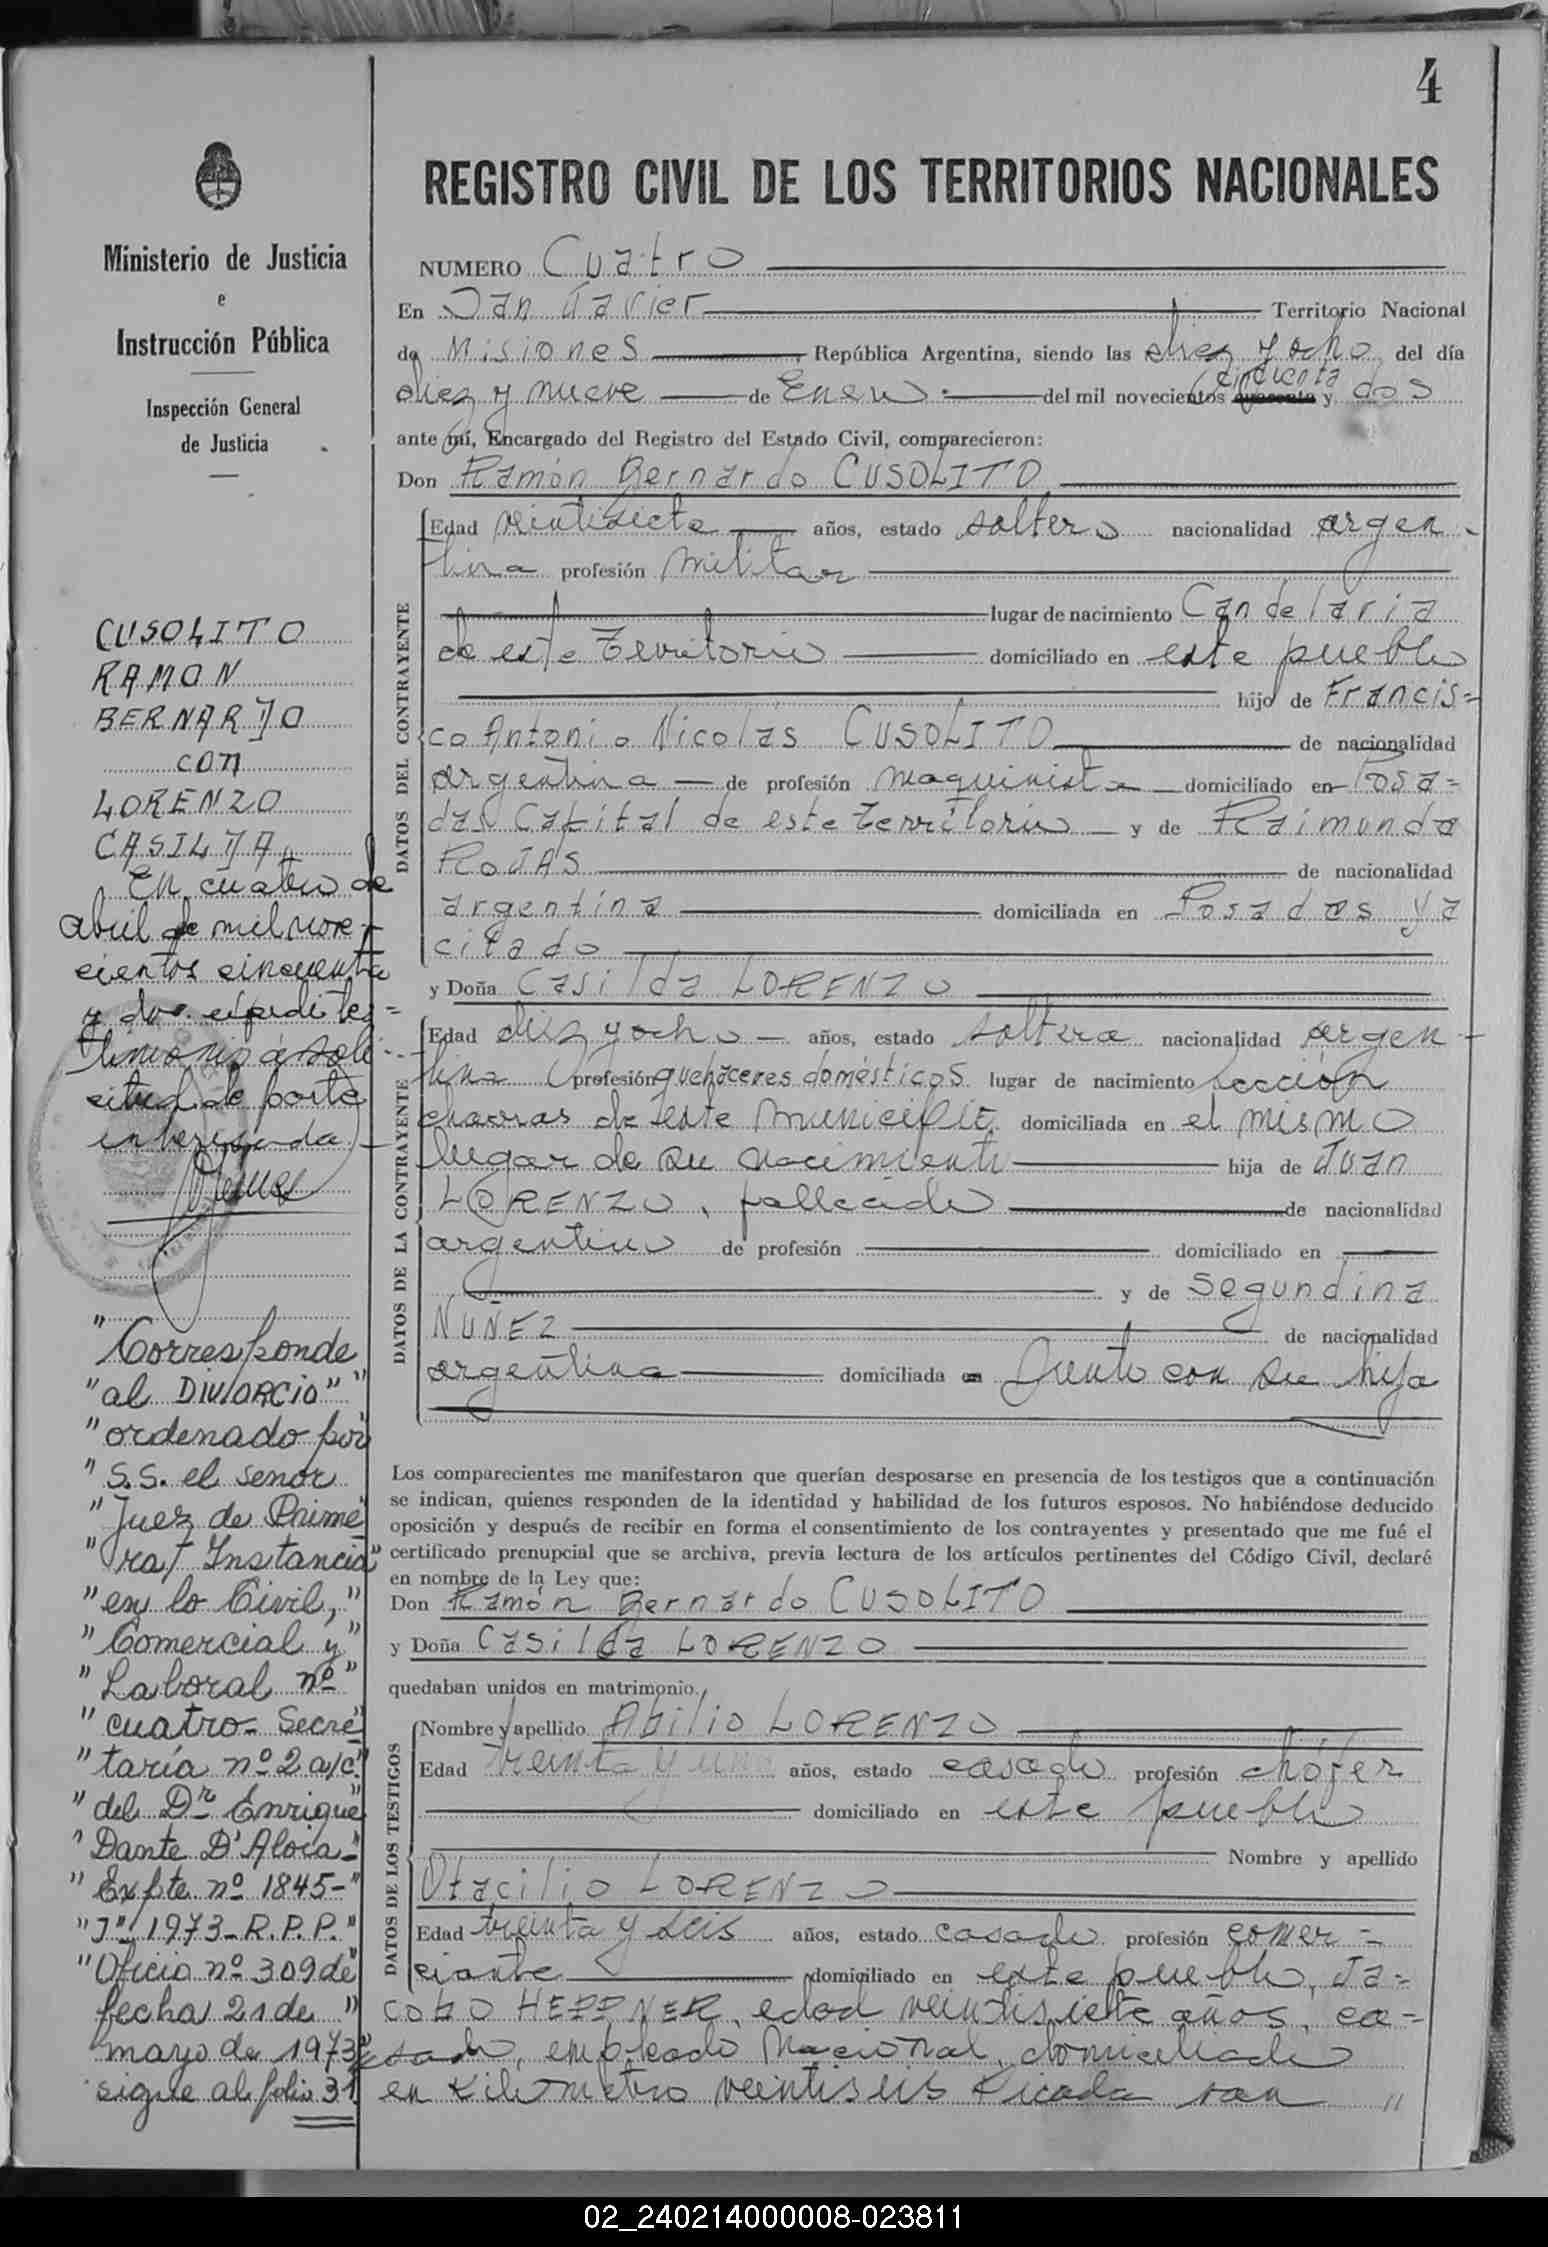 4
REGISTRO CIVIL DE LOS TERRITORIOS NACIONALES
Ministerio de Justicia
e
Instrucción Pública
Inspección General
de Justicia
CUSOLITO
RAMON
BERNARDO
con
LORENZO
CASILDA
En cuatro de
abril de mil nove-
cientos cincuenta
y dos. expedí tes=
timonio á soli-
citud de parte
interesada
"Corresponde
"al DIVORCIO"
"ordenado por
"S.S. el señor
"Juez de Prime
"ra Instancia"
"en lo Civil,"
"Comercial y"
"Laboral nº"
"cuatro- Secre
"taría nº 2 a/c."
"del Dr Enrique
"Dante D'Aloia-"
"Expte nº 1845-"
1973-R.P.P."
"Oficio nº 309 de"
fecha 21 de "
mayo de 1973
sigue al folio 31
NUMERO Cuatro
En San Javier Territorio Nacional
de Misiones, República Argentina, siendo las diez y ocho del día
diez y nueve de Enero del mil novecientos cincuenta y dos
ante mí, Encargado del Registro del Estado Civil, comparecieron:
Don Ramón Bernardo CUSOLITO
DATOS DEL CONTRAYENTE
Edad veintisiete años, estado soltero nacionalidad argen-
tina profesión militar
lugar de nacimiento Candelaria
de este Territorio domiciliado en este pueblo
hijo de Francis=
co Antonio Nicolás CUSOLITO de nacionalidad
argentina de profesión maquinista domiciliado en Posa=
das Capital de este territorio y de Raimunda
ROJAS de nacionalidad
argentina domiciliada en Posadas ya
citado
y Doña Casilda LORENZO
DATOS DE LA CONTRAYENTE
Edad diez y ocho años, estado soltera nacionalidad argen-
tina profesión quehaceres domésticos lugar de nacimiento sección
chacras de este Municipio domiciliada en el mismo
lugar de su nacimiento hija de Juan
LORENZO, fallecido de nacionalidad
argentino de profesión domiciliado en
y de Segundina
NUÑEZ de nacionalidad
argentina domiciliada en Junto con su hija
Los comparecientes me manifestaron que querían desposarse en presencia de los testigos que a continuación
se indican, quienes responden de la identidad y habilidad de los futuros esposos. No habiéndose deducido
oposición y después de recibir en forma el consentimiento de los contrayentes y presentado que me fué el
certificado prenupcial que se archiva, previa lectura de los artículos pertinentes del Código Civil, declaré
en nombre de la Ley que:
Don Ramón Bernardo CUSOLITO
y Doña Casilda LORENZO
quedaban unidos en matrimonio.
DATOS DE LOS TESTIGOS
Nombre y apellido Abilio LORENZO
Edad treinta y uno años, estado casado profesión chófer
domiciliado en este pueblo
Nombre y apellido
Otacilio LORENZO
Edad treinta y seis años, estado casado profesión comer=
ciante domiciliado en este pueblo, Ja=
cobo HEPPNER, edad veintisiete años, ca=
sado, empleado Nacional, domiciliado
en Kilómetro veintiseis Picada san "
02_240214000008-023811